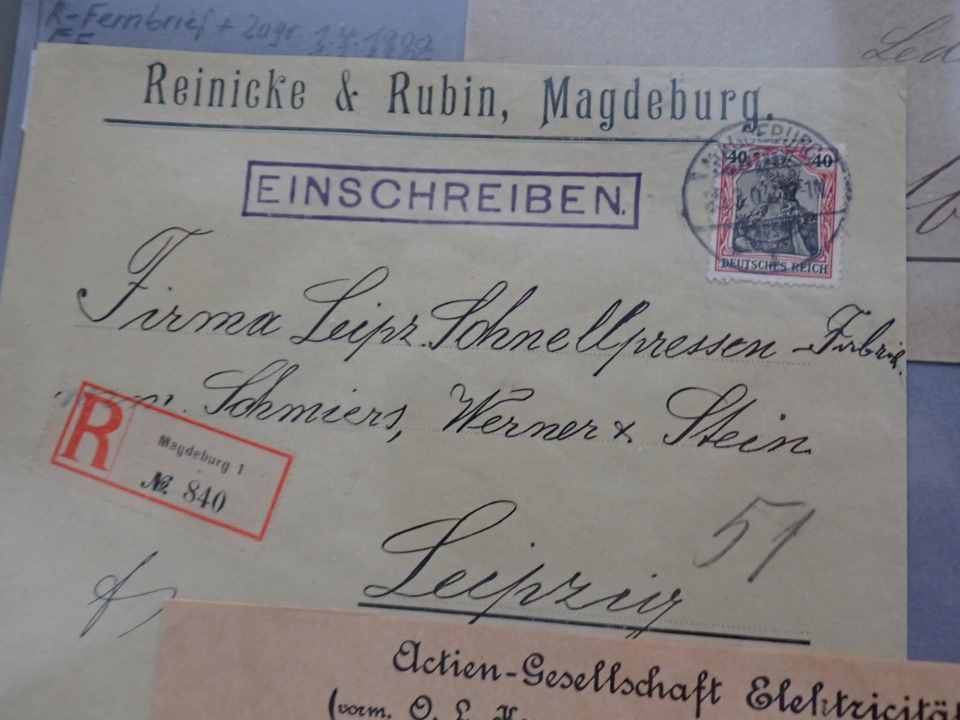 R-Fernbrief + Zusatz
Reinicke & Rubin, Magdeburg.
EINSCHREIBEN.
MAGDEBURG
40 40
DEUTSCHES REICH
Firma Leipz. Schnellpressen-Fabrik.
Schmiers, Werner & Stein
R
Magdeburg 1
№ 840
Leipzig
51
Actien-Gesellschaft Elektricitä
(vorm. O. L.